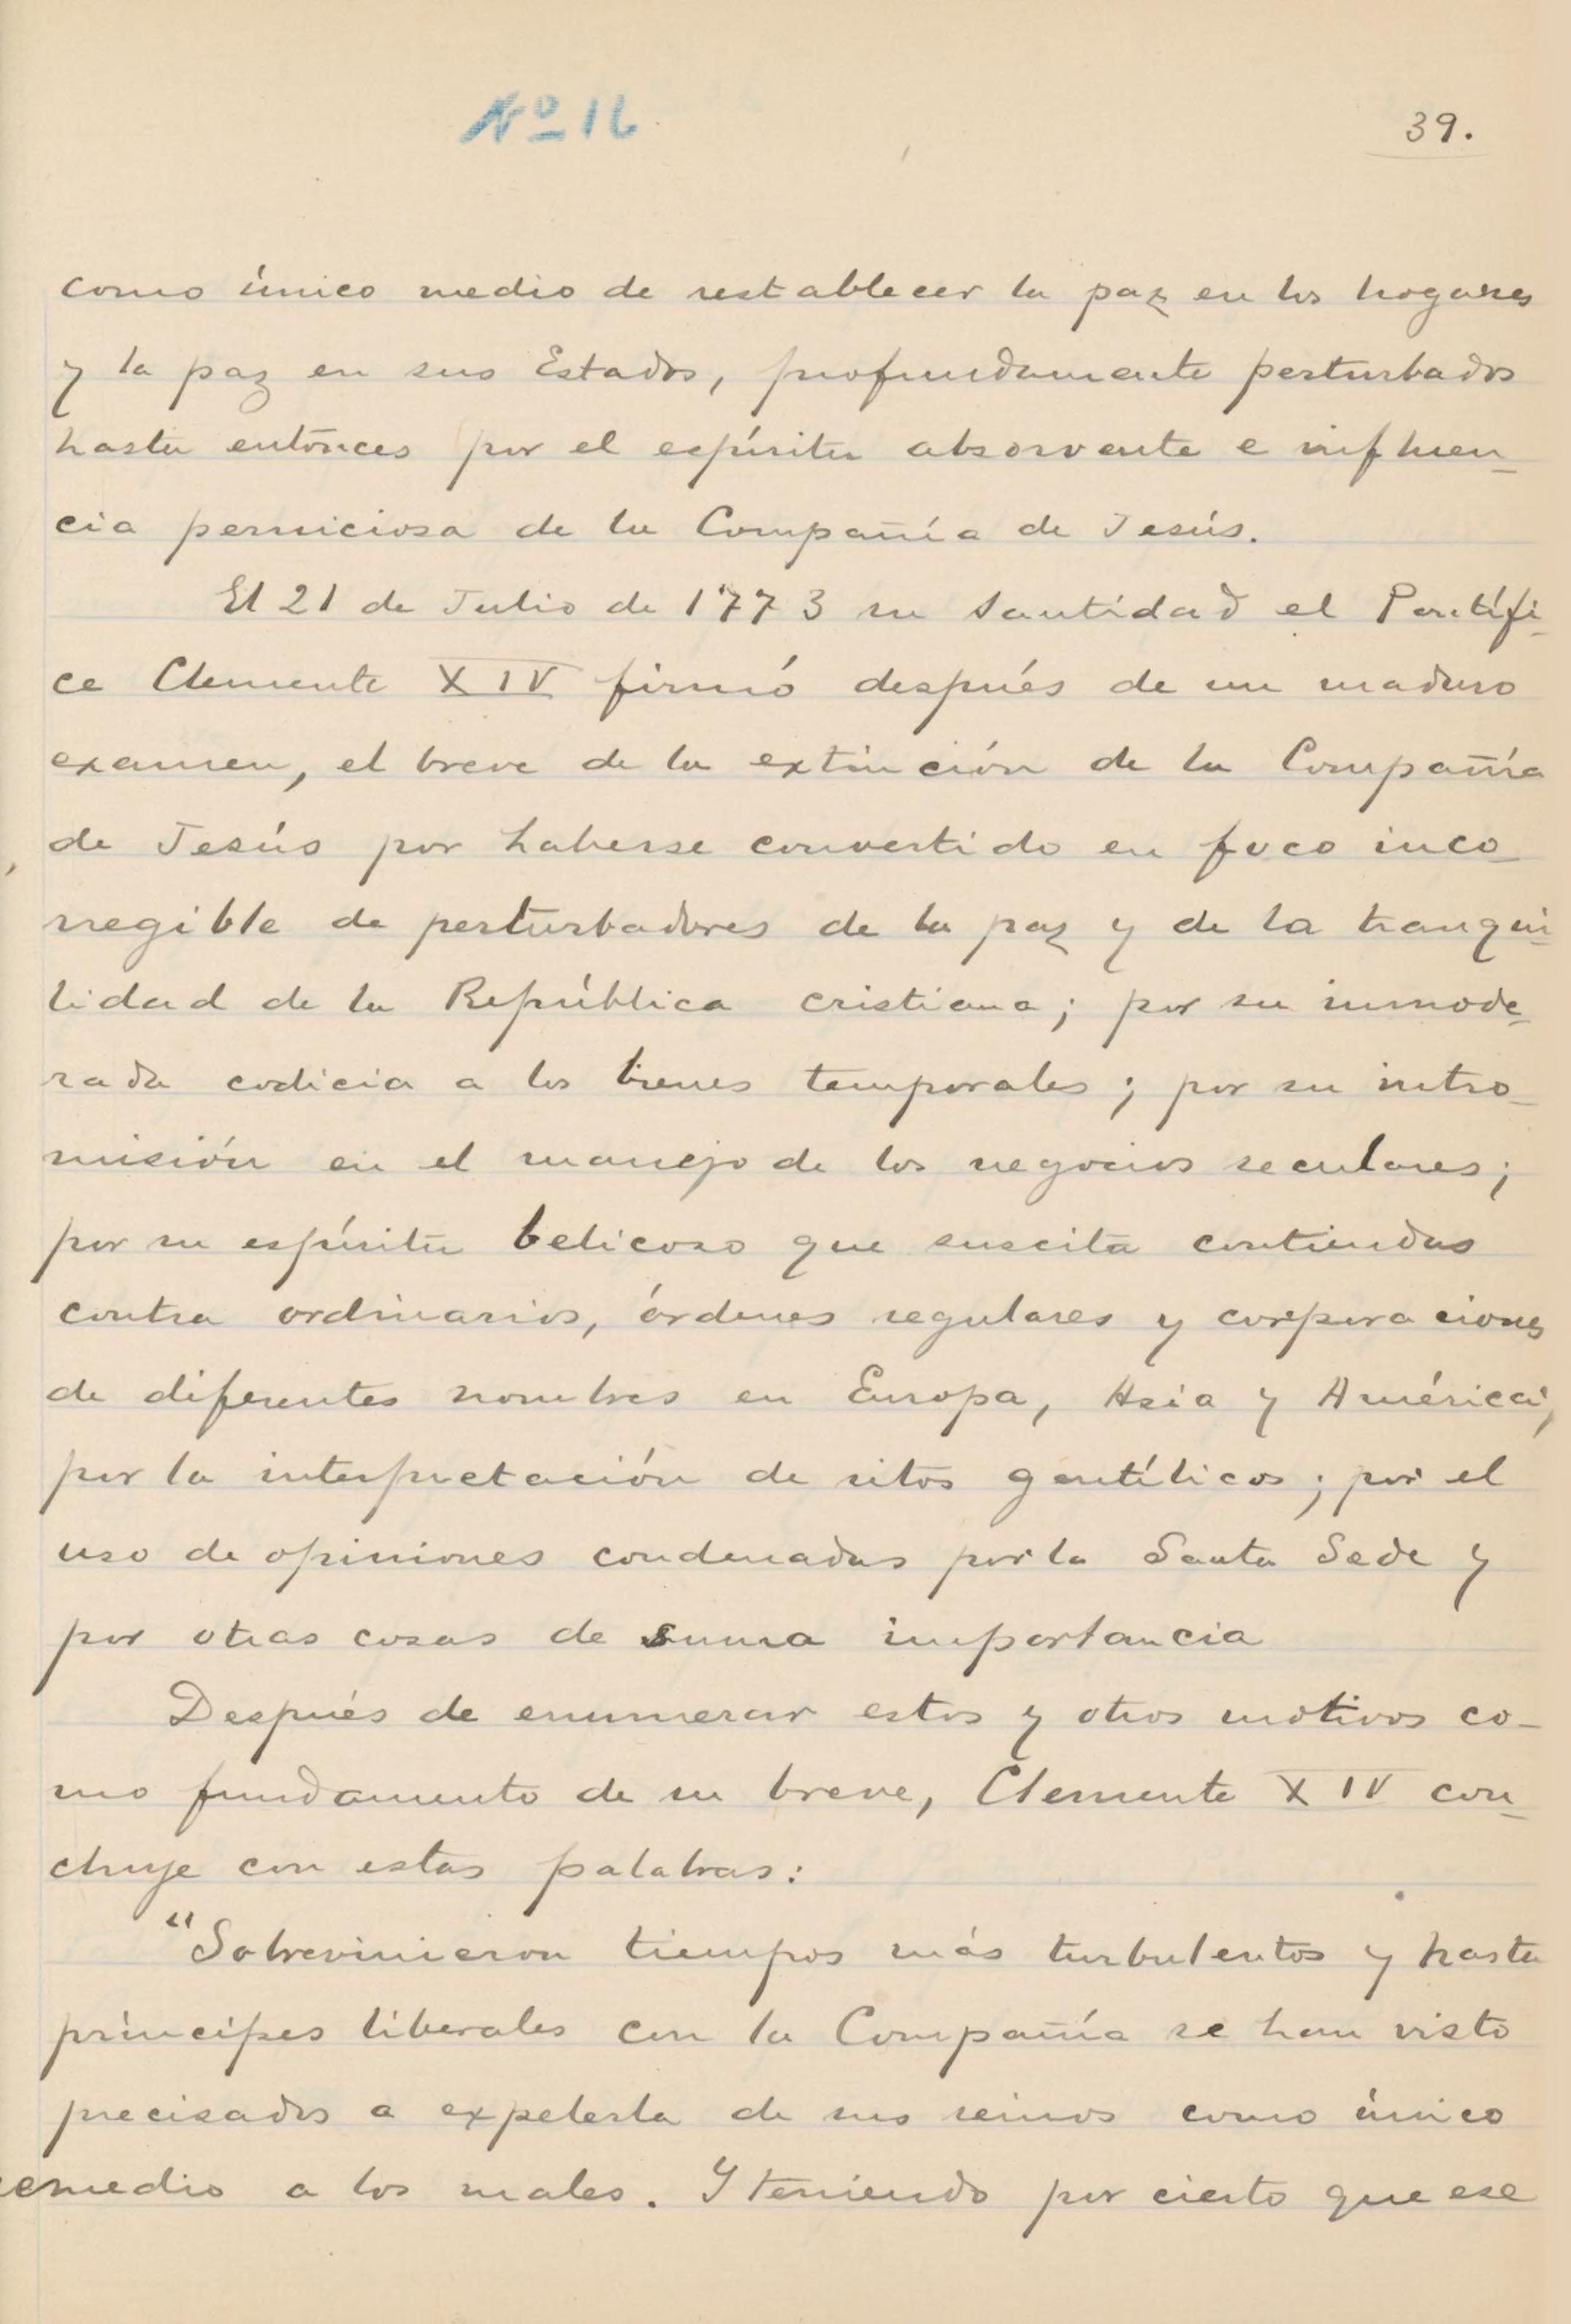 Nº 16
39.
como único medio de restablecer la paz en los hogares
y la paz en sus Estados, profundamente perturbados
hasta entónces por el espíritu absorvente e influen-
cia perniciosa de la Compañía de Jesús.
El 21 de Julio de 1773 su Santidad el Pontífi-
ce Clemente XIV firmó después de un maduro
examen, el breve de la extinción de la Compañía
de Jesús por haberse convertido en foco inco-
rregible de perturbadores de la paz y de la tranqui-
lidad de la República cristiana; por su inmode-
rada codicia a los bienes temporales; por su intro-
misión en el manejo de los negocios seculares;
por su espíritu belicoso que suscita contiendas
contra ordinarios, órdenes regulares y corporaciones
de diferentes nombres en Europa, Asia y América;
por la interpretación de ritos gentílicos; por el
uso de opiniones condenadas por la Santa Sede y
por otras cosas de suma importancia
Después de enumerar estos y otros motivos co-
mo fundamento de su breve, Clemente XIV con-
cluye con estas palabras:
"Sobrevinieron tiempos más turbulentos y hasta
príncipes liberales con la Compañía se han visto
precisados a expelerla de sus reinos como único
remedio a los males. Y teniendo por cierto que ese